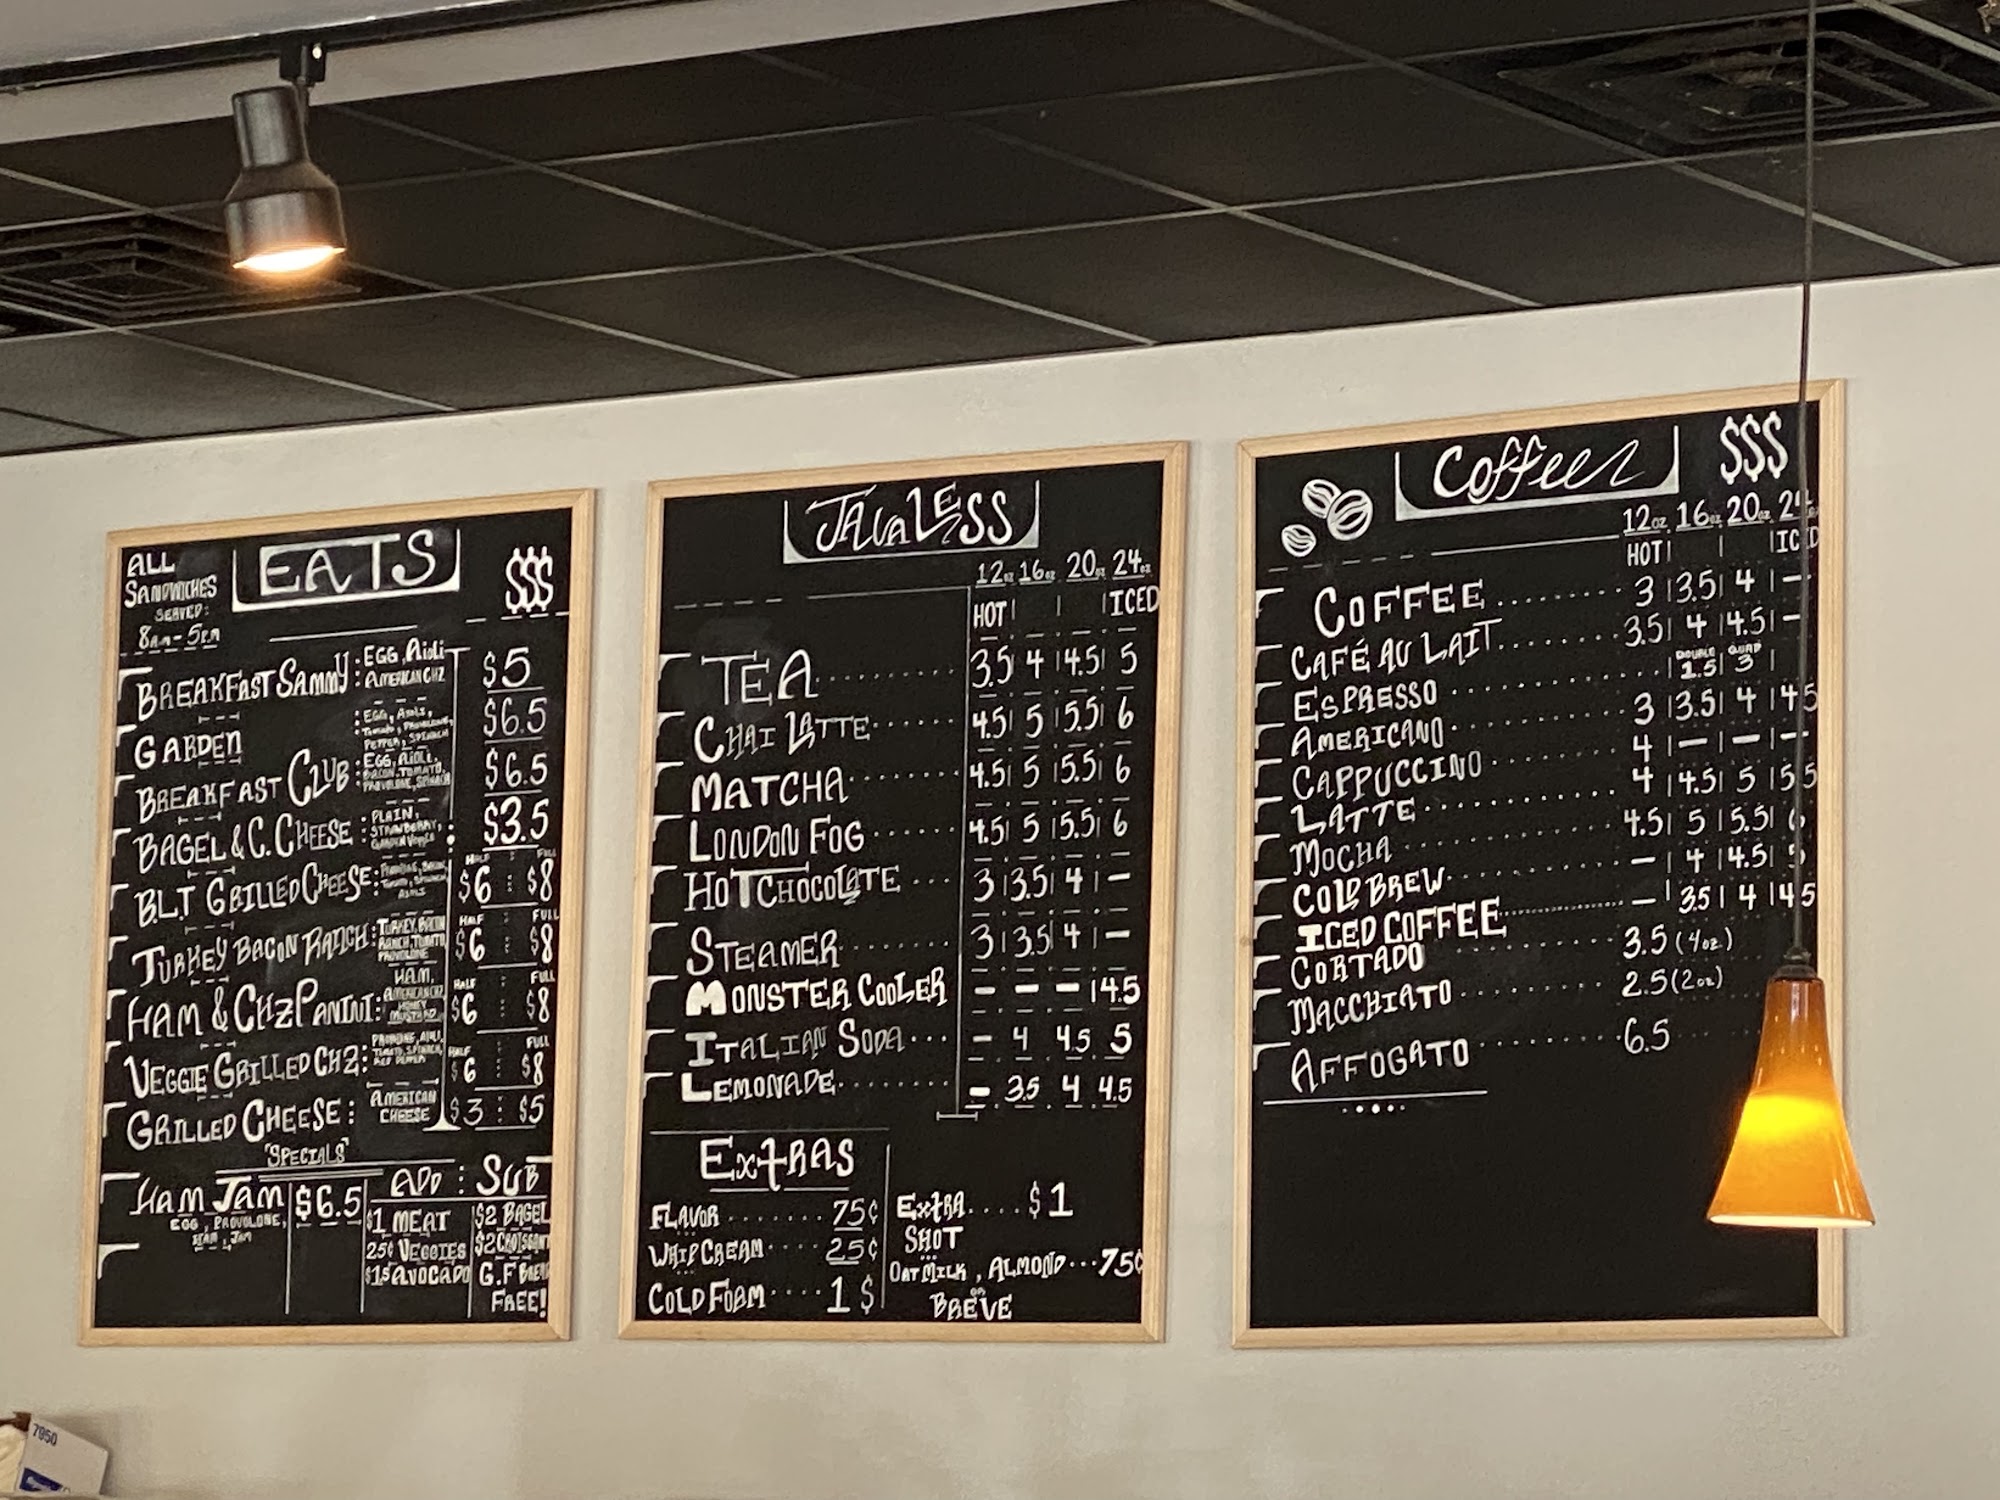 ALL
SANDWICHES
SERVED:
8am-5pm
EATS
$$$
BREAKFAST SAMMY: EGG, Aioli $5
AMERICAN CHZ
GARDEN : EGG, Aioli, $6.5
TOMATO, PROVOLONE,
PEPPER, SPINACH
BREAKFAST CLUB: EGG, Aioli, $6.5
BACON, TOMATO,
PROVOLONE, SPINACH
BAGEL & C. CHEESE : PLAIN, $3.5
STRAWBERRY,
GARDEN VEGGIE
HALF : FULL
B.L.T GRILLED CHEESE: PROVOLONE, BACON, $6 : $8
TOMATO, SPINACH,
Aioli
HALF : FULL
TURKEY BACON RANCH: TURKEY, BACON $6 : $8
RANCH, TOMATO,
PROVOLONE
HALF FULL
HAM & CHZ PANINI: HAM, $6 : $8
AMERICAN CHZ
HONEY
MUSTARD
HALF FULL
VEGGIE GRILLED CHZ: PROVOLONE, Aioli, $6 $8
TOMATO, SPINACH,
RED PEPPER
GRILLED CHEESE: AMERICAN CHEESE $3 : $5
"SPECIALS"
HAM JAM $6.5
EGG, PROVOLONE,
HAM, JAM
ADD : SUB
$1 MEAT $2 BAGEL
25¢ VEGGIES $2 CROISSANT
$1.5 AVOCADO G.F BREAD
FREE!
JAVALESS
12oz 16oz 20oz 24oz
HOT | | | ICED
TEA 3.5 4 | 4.5 | 5
CHAI LATTE 4.5 | 5 | 5.5 | 6
MATCHA 4.5 | 5 | 5.5 | 6
LONDON FOG 4.5 | 5 | 5.5 | 6
HOT CHOCOLATE ... 3 | 3.5 | 4 | —
STEAMER 3 | 3.5 | 4 | —
MONSTER COOLER - - - | 4.5
ITALIAN SODA ... - 4 4.5 5
LEMONADE - 3.5 4 4.5
EXTRAS
FLAVOR ....... 75¢
WHIP CREAM .... 25¢
COLD FOAM .... 1 $
EXTRA .... $1
SHOT
OAT MILK, ALMOND ... 75¢
OR
BREVE
Coffee
$$$
12oz 16oz 20oz 24
HOT | | | ICED
COFFEE 3 | 3.5 | 4 | —
CAFÉ AU LAIT 3.5 | 4 | 4.5 | —
DOUBLE QUAD
ESPRESSO 1.5 | 3 |
AMERICANO 3 | 3.5 | 4 | 4.5
CAPPUCCINO 4 | — | — | —
LATTE 4 | 4.5 | 5 | 5.5
MOCHA 4.5 | 5 | 5.5 | 6
COLD BREW — | 4 | 4.5 | 5
ICED COFFEE — | 3.5 | 4 | 4.5
CORTADO 3.5 (4oz)
MACCHIATO 2.5 (2oz)
AFFOGATO 6.5
7950